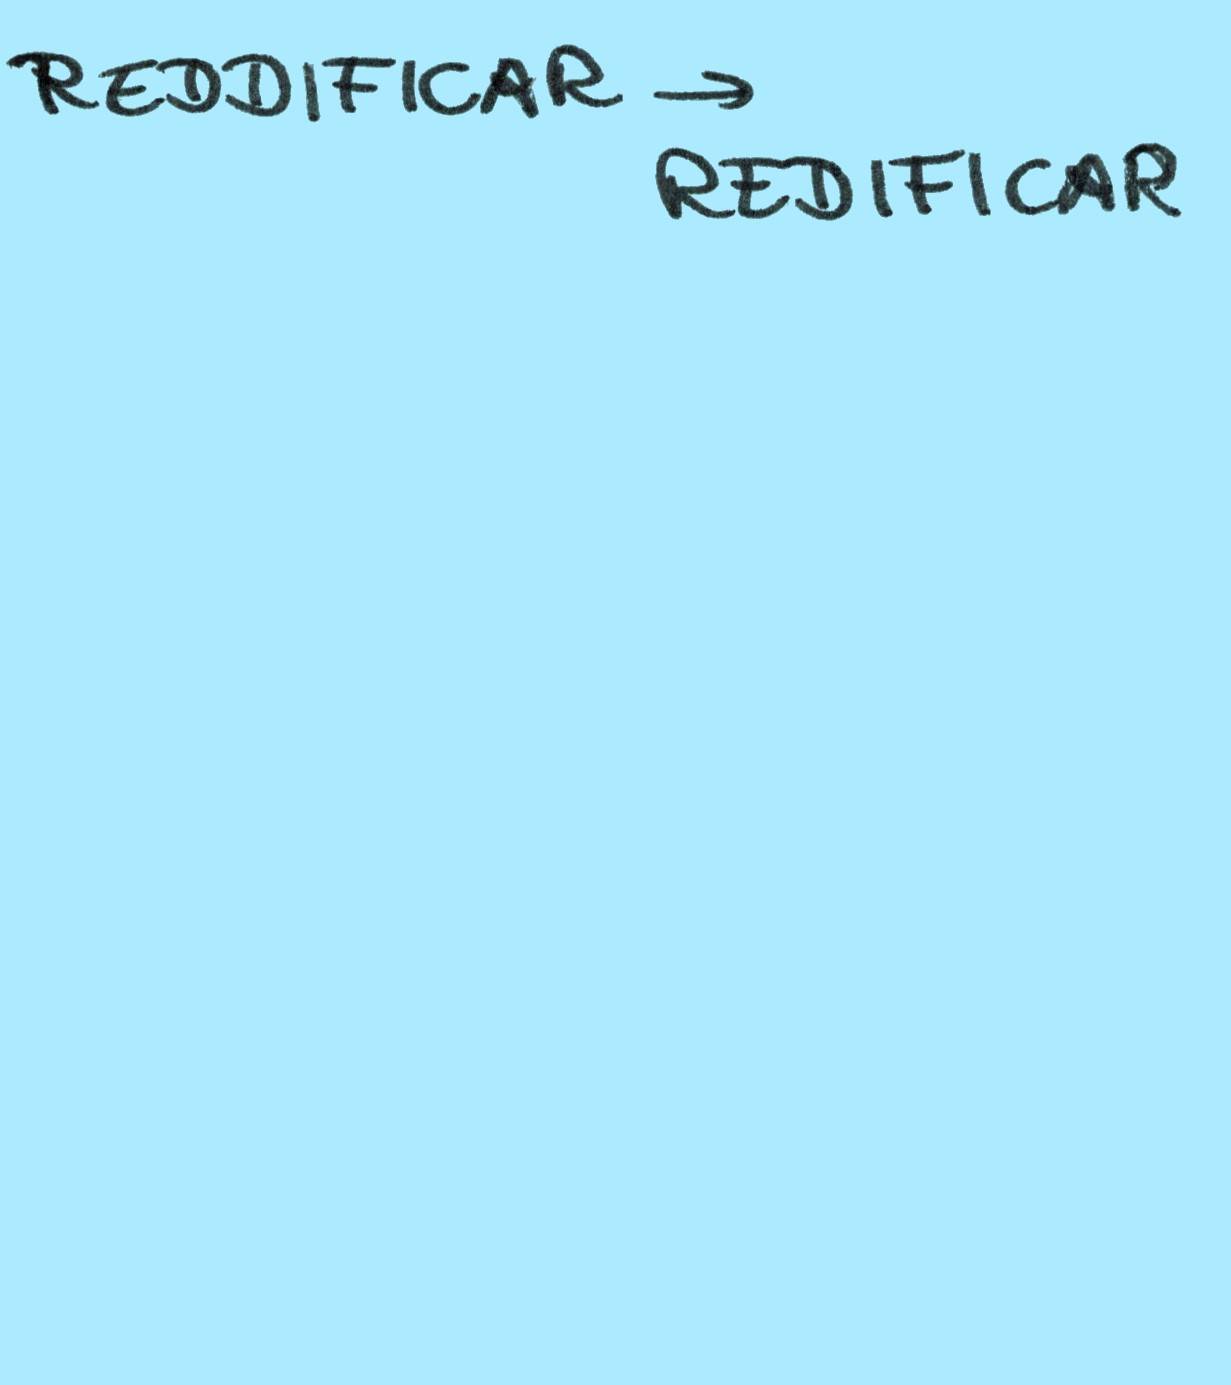 REDDIFICAR →
REDIFICAR